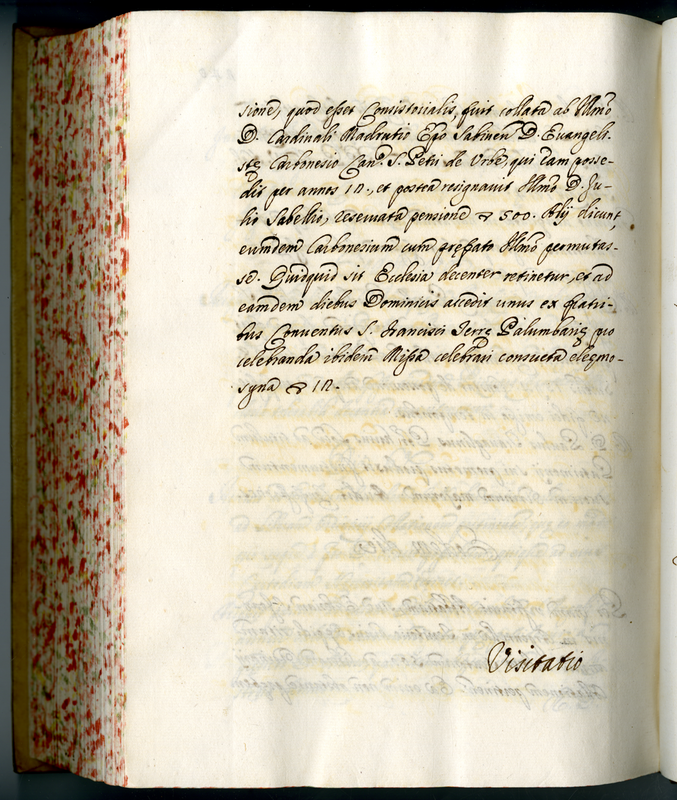 sione, quod esset Consistorialis, fuit collata ab Illmo
D. Cardinali Madrutio Epo Sabinen D. Evangeli-
stę Carbonesio Can. S. Petri de Urbe, qui eam posse-
dit per annos 12., et postea resignavit Illmo D. Ju-
lio Sabellio, reservata pensione 500. Alij dicunt,
eumdem Carbonesium cum pręfato Illmo permutas-
se. Quidquid sit Ecclesia decenter retinetur, et ad
eamdem diebus Dominicis accedit unus ex fratri-
bus Conventus S. Francisci Terrę Palumbarię pro
celebranda ibidem Missa celebrari consueta eleęmo-
syna 12.
Visitatio